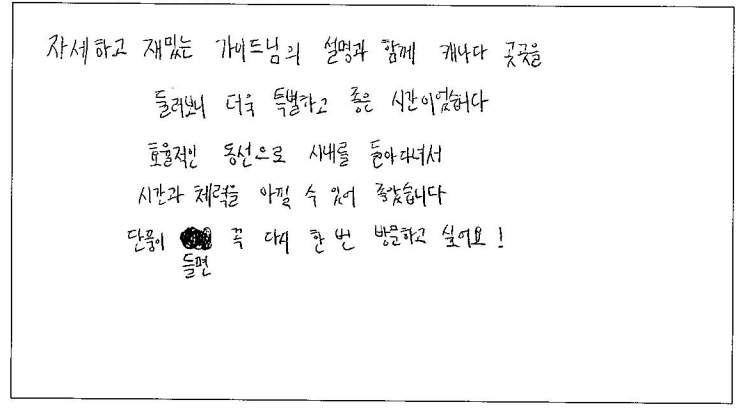 자세하고 재밌는 가이드님의 설명과 함께 캐나다 곳곳을
둘러보니 더욱 특별하고 좋은 시간이었습니다
효율적인 동선으로 시내를 돌아다녀서
시간과 체력을 아낄 수 있어 좋았습니다
단풍이 꼭 다시 한 번 방문하고 싶어요!
들면